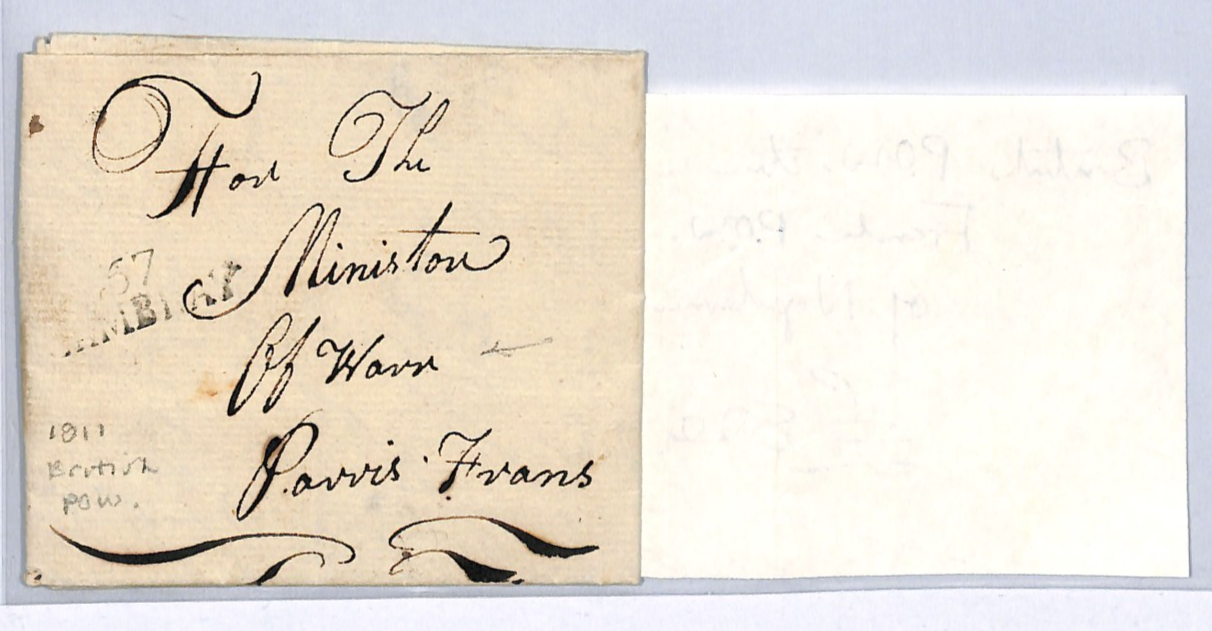 For The
Ministor
Of Warr
Parris Frans
57
CAMBRAY
1811
British
POW.
British POW. the
French. P.O.W.